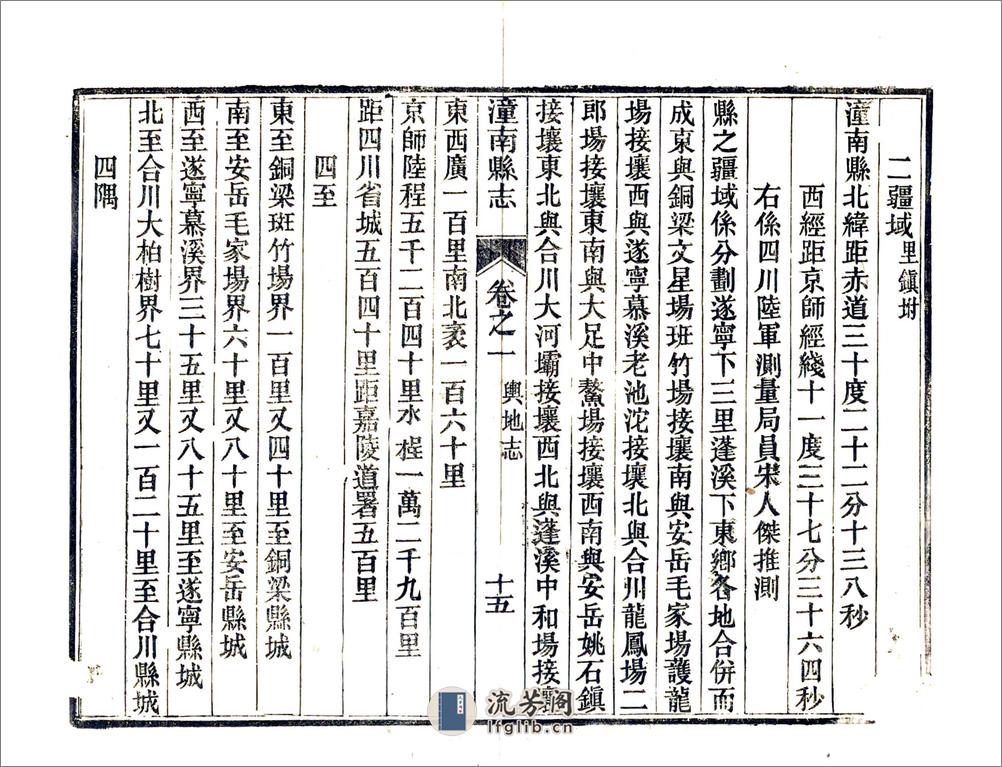 二疆域里鎭坿
潼南縣北緯距赤道三十度二十二分十三八秒
西經距京師經綫十一度三十七分三十六四秒
右係四川陸軍測量局員宋人傑推測
縣之疆域係分劃遂寧下三里蓬溪下東鄕各地合併而
成東與銅梁文星場班竹場接壤南與安岳毛家場護龍
場接壤西與遂寧慕溪老池沱接壤北與合川龍鳳場二
郎場接壤東南與大足中鰲場接壤西南與安岳姚石鎭
接壤東北與合川大河壩接壤西北與蓬溪中和場接壤
潼南縣志 卷之一 輿地志 十五
東西廣一百里南北袤一百六十里
京師陸程五千二百四十里水程一萬二千九百里
距四川省城五百四十里距嘉陵道署五百里
四至
東至銅梁斑竹場界一百里又四十里至銅梁縣城
南至安岳毛家場界六十里又八十里至安岳縣城
西至遂寧慕溪界三十五里又八十五里至遂寧縣城
北至合川大柏樹界七十里又一百二十里至合川縣城
四隅
流芳閣
lfglib.cn